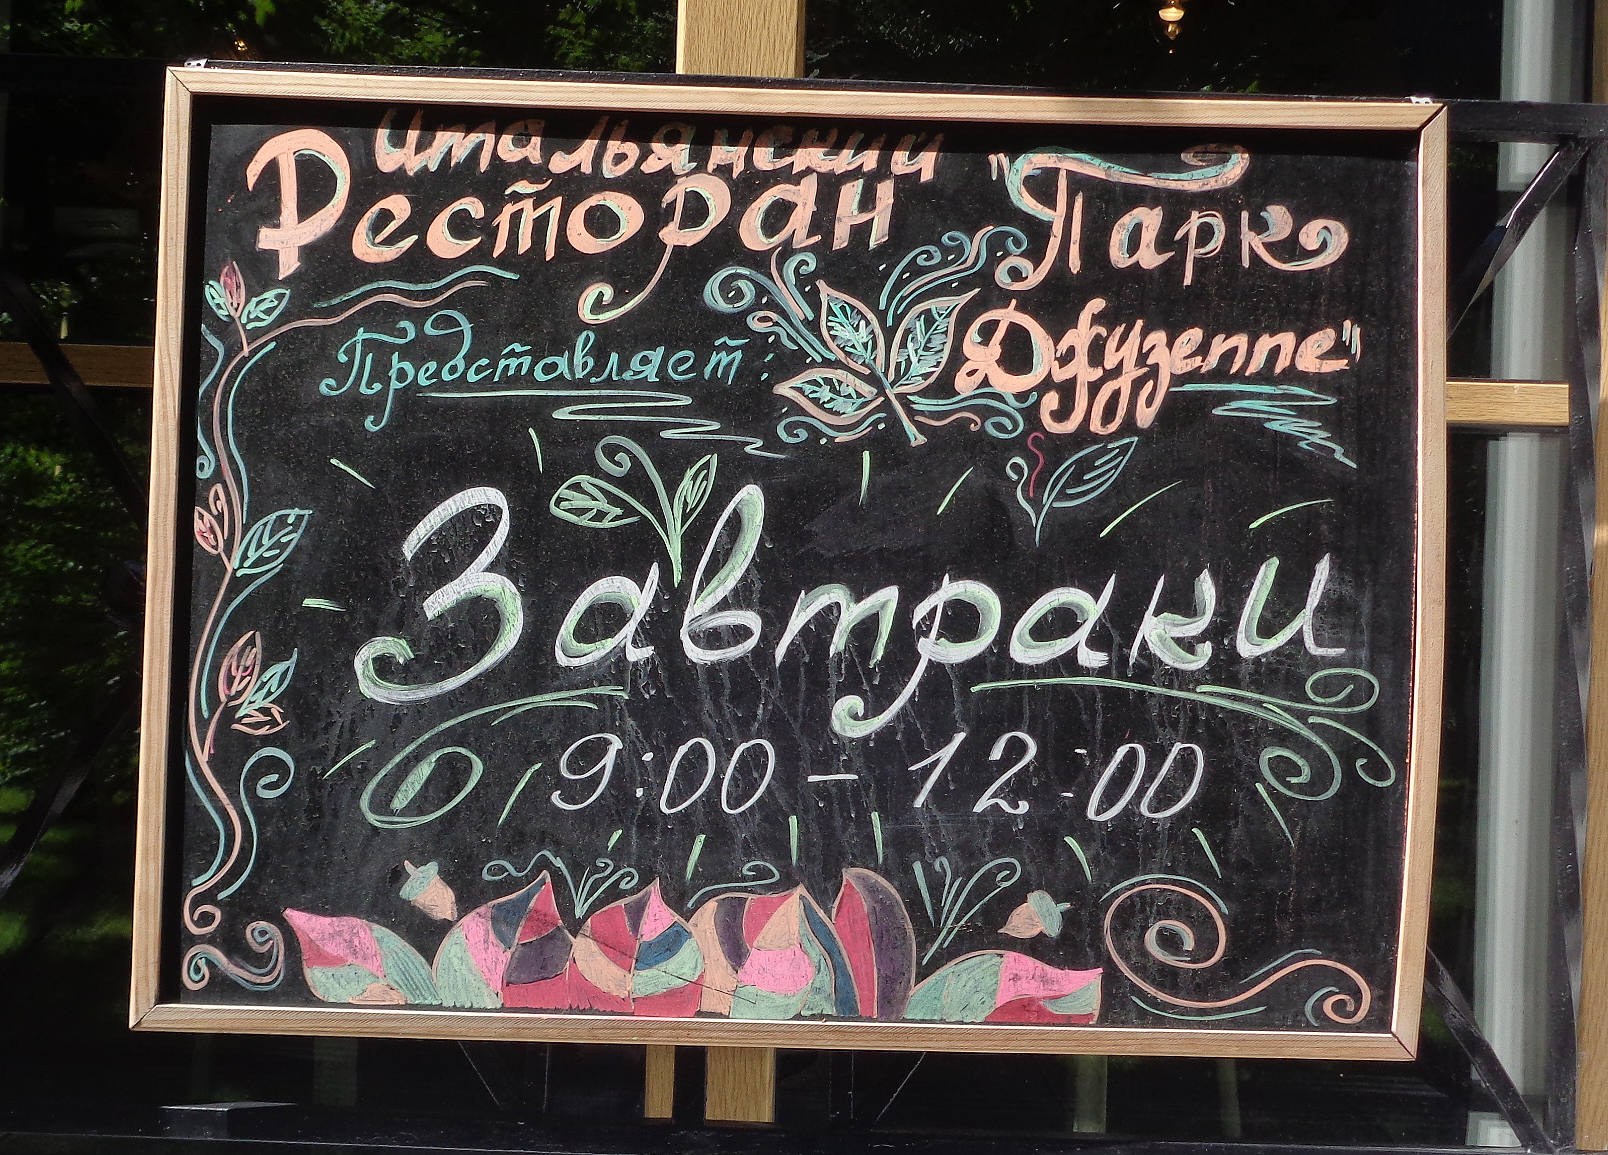 Итальянский
Ресторан "Парк
Джузеппе"
Представляет:
Завтраки
9:00 - 12:00